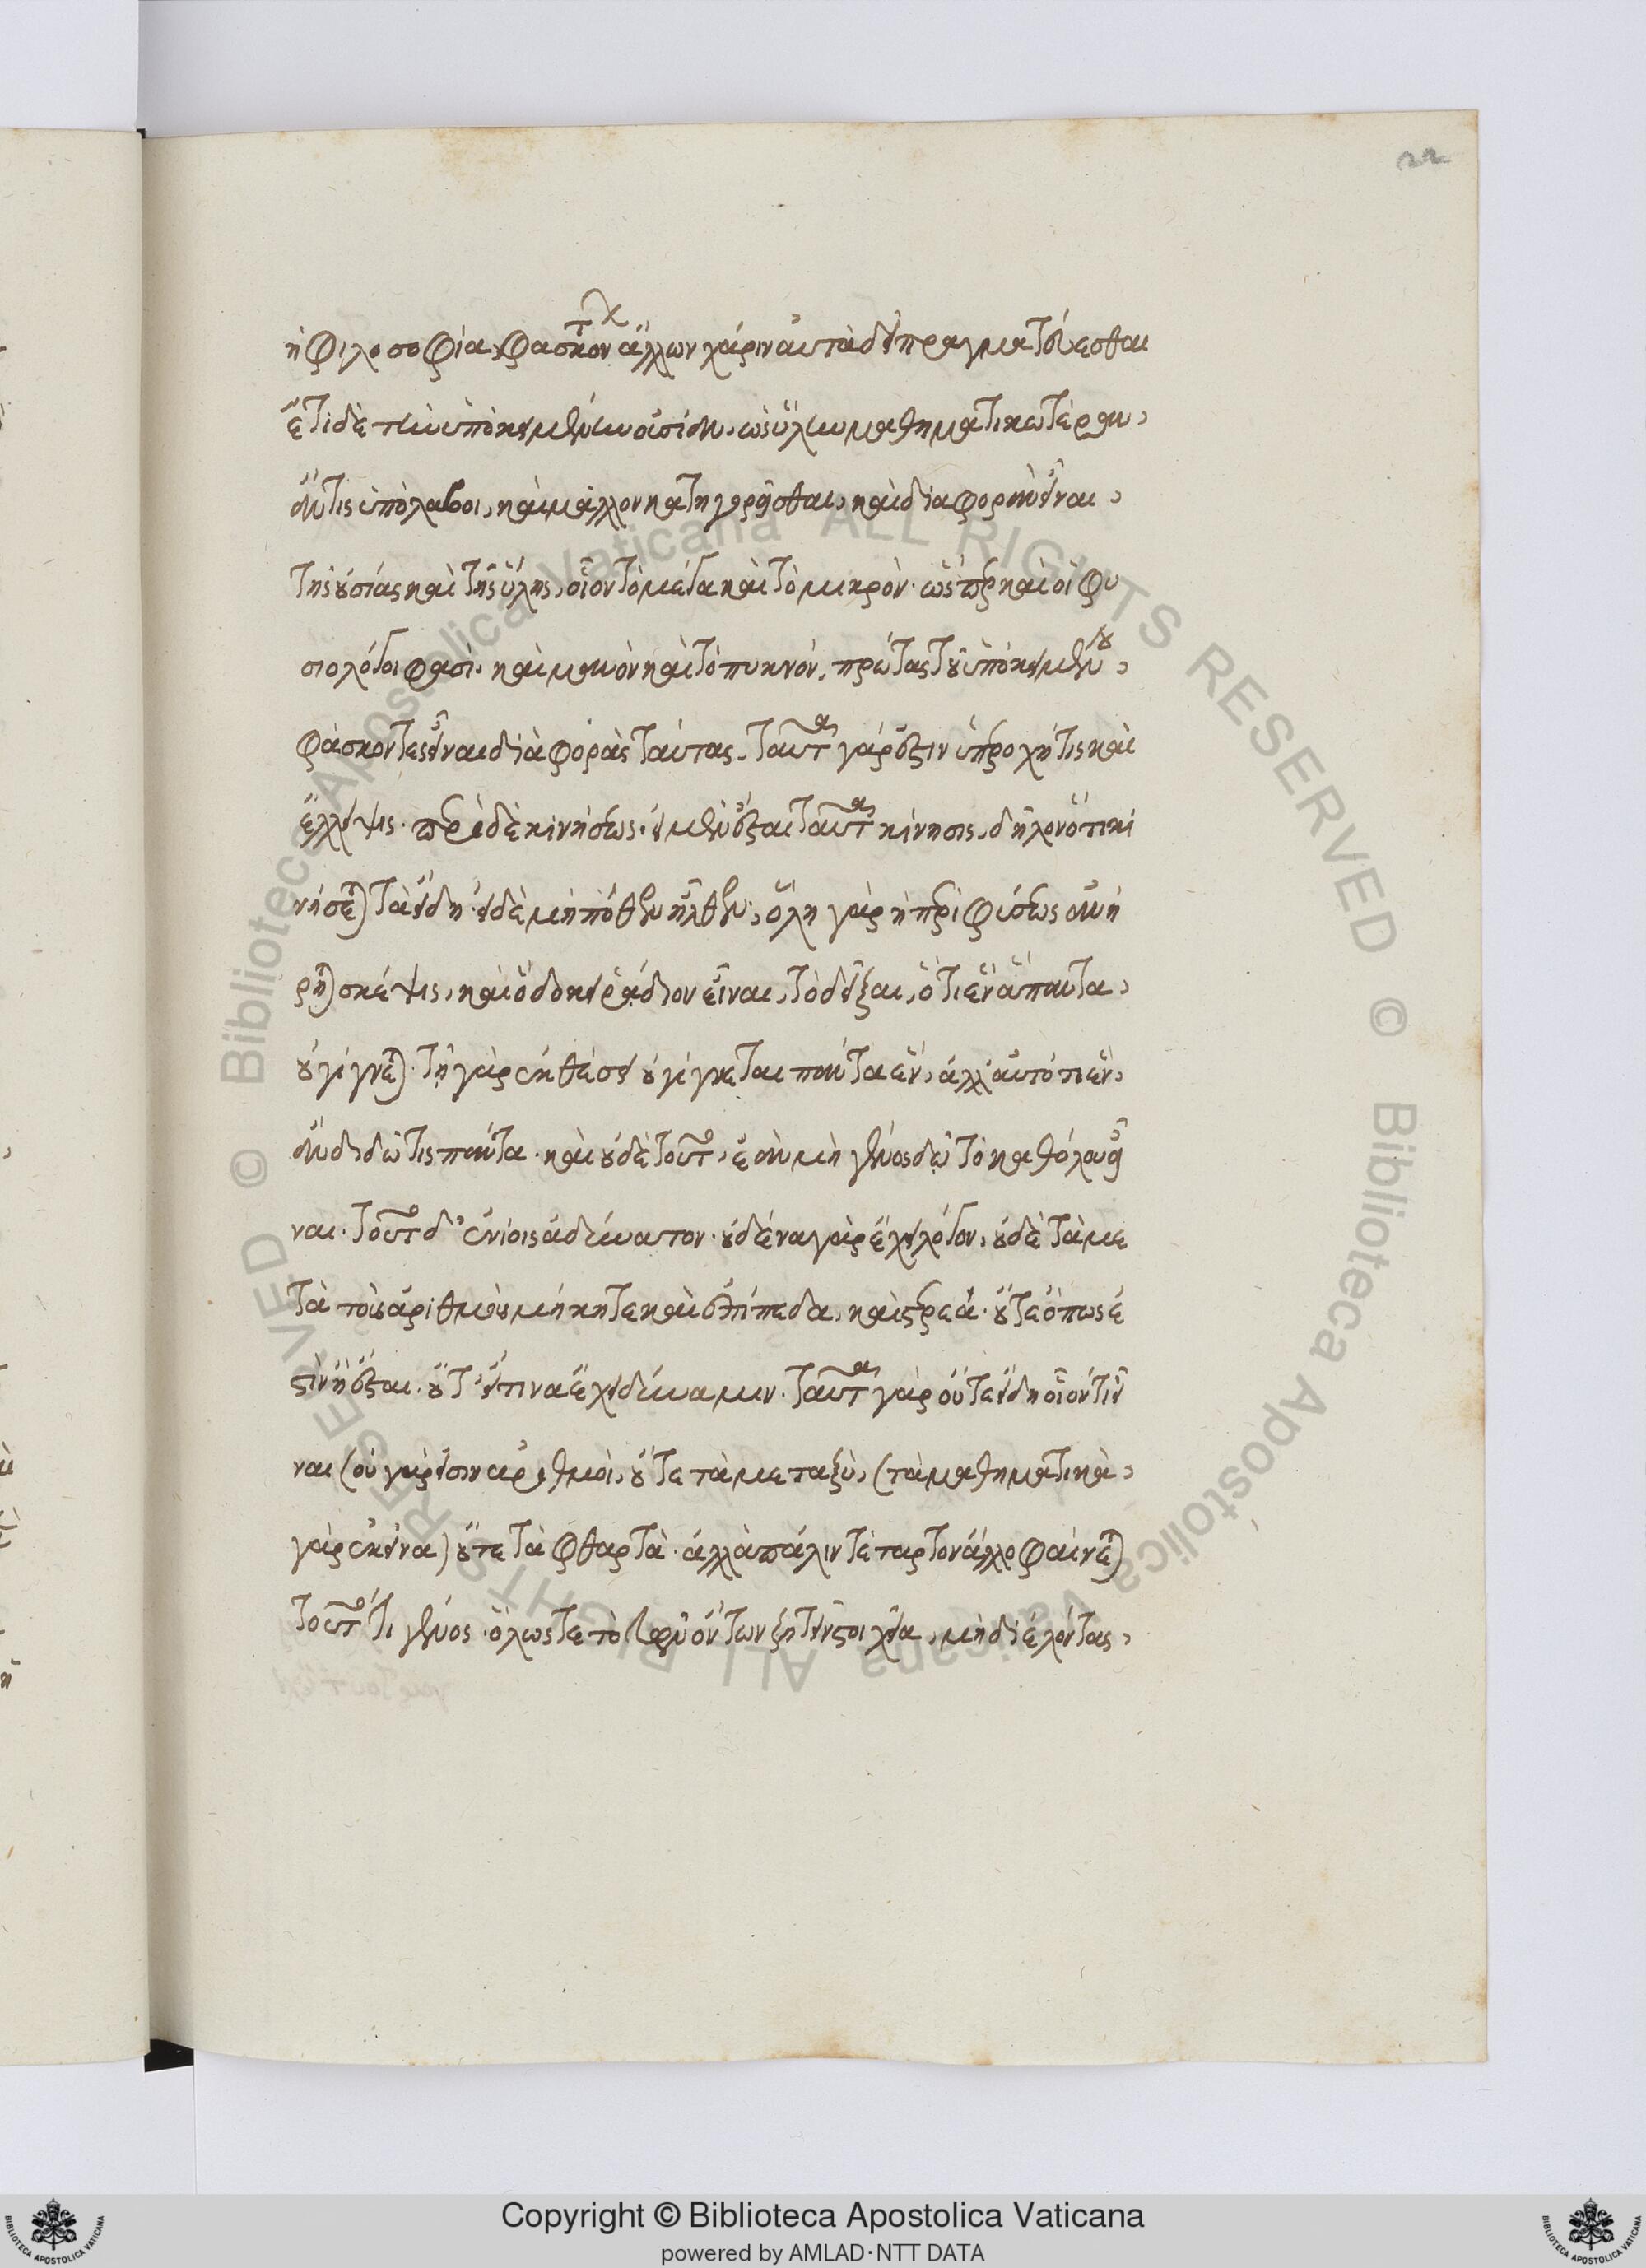 22
ἡ φιλοσοφία, φασκόντων ἄλλων χάριν αὐτὰ δεῖ πραγματεύεσθαι
ἔτι δὲ τὴν ὑποκειμένην οὐσίαν, ὡς ὕλην μαθηματικωτέραν,
ἄν τις ὑπολάβοι, καὶ μᾶλλον κατηγορεῖσθαι, καὶ διαφορὰν εἶναι,
τῆς οὐσίας καὶ τῆς ὕλης, οἷον τὸ μέγα καὶ τὸ μικρόν· ὥσπερ καὶ οἱ φυ
σιολόγοι φασὶ, καὶ μανὸν καὶ τὸ πυκνόν, πρώτας τοῦ ὑποκειμένου,
φάσκοντες εἶναι διαφορὰς ταύτας. ταῦτα γάρ ἐστιν ὑπεροχή τις καὶ
ἔλλειψις. περὶ δὲ κινήσεως, εἰ μὲν ἔσται ταῦτα κίνησις, δῆλον ὅτι κι
νήσεται τὰ εἴδη· εἰ δὲ μὴ πόθεν ἦλθεν; ὅλη γὰρ ἡ περὶ φύσεως ἀνῄ
ρηται σκέψις, καὶ ὃ δοκεῖ ῥᾴδιον εἶναι, τὸ δεῖξαι, ὅτι ἓν ἅπαντα,
οὐ γίγνεται. τῇ γὰρ ἐκθέσει οὐ γίγνεται πάντα ἕν, ἀλλ' αὐτό τι ἕν,
ἂν διδῷ τις πάντα. καὶ οὐδὲ τοῦτο, ἐὰν μὴ γένος δῷ τὸ καθόλου εἶ
ναι. τοῦτο δ' ἐνίοις ἀδύνατον. οὐδένα γὰρ ἔχει λόγον, οὐδὲ τὰ με
τὰ τοὺς ἀριθμοὺς μήκη τε καὶ ἐπίπεδα, καὶ στερεά. οὔτε ὅπως ἐ
στὶν ἢ ἔσται. οὔτ' εἴ τινα ἔχει δύναμιν. ταῦτα γὰρ οὔτε εἴδη οἷόν τε εἶ
ναι (οὐ γάρ εἰσιν ἀριθμοί, οὔτε τὰ μεταξύ, (τὰ μαθηματικὰ,
γὰρ ἐκεῖνα) οὔτε τὰ φθαρτὰ. ἀλλὰ πάλιν τέταρτον ἄλλο φαίνεται
τοῦτό τι γένος. ὅλως τε τὸ τῶν ὄντων ζητεῖν στοιχεῖα, μὴ διελόντας,
Copyright © Biblioteca Apostolica Vaticana
powered by AMLAD·NTT DATA